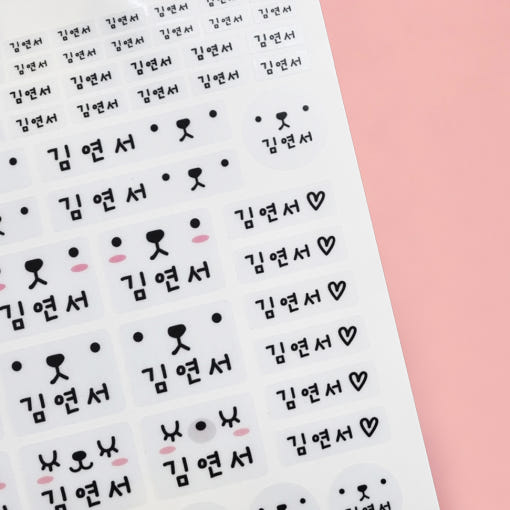 김연서 김연서 김연서 김연서 김연서
김연서 김연서 김연서 김연서 김연서
김연서 김연서 김연서 김연서 김연서
김연서 김연서 김연서 김연서 김연서
김연서
김연서
김연서
김연서 ♡
김연서 김연서
김연서 ♡
김연서 ♡
김연서 김연서
김연서 ♡
김연서 ♡
김연서 김연서
김연서 ♡
김연서